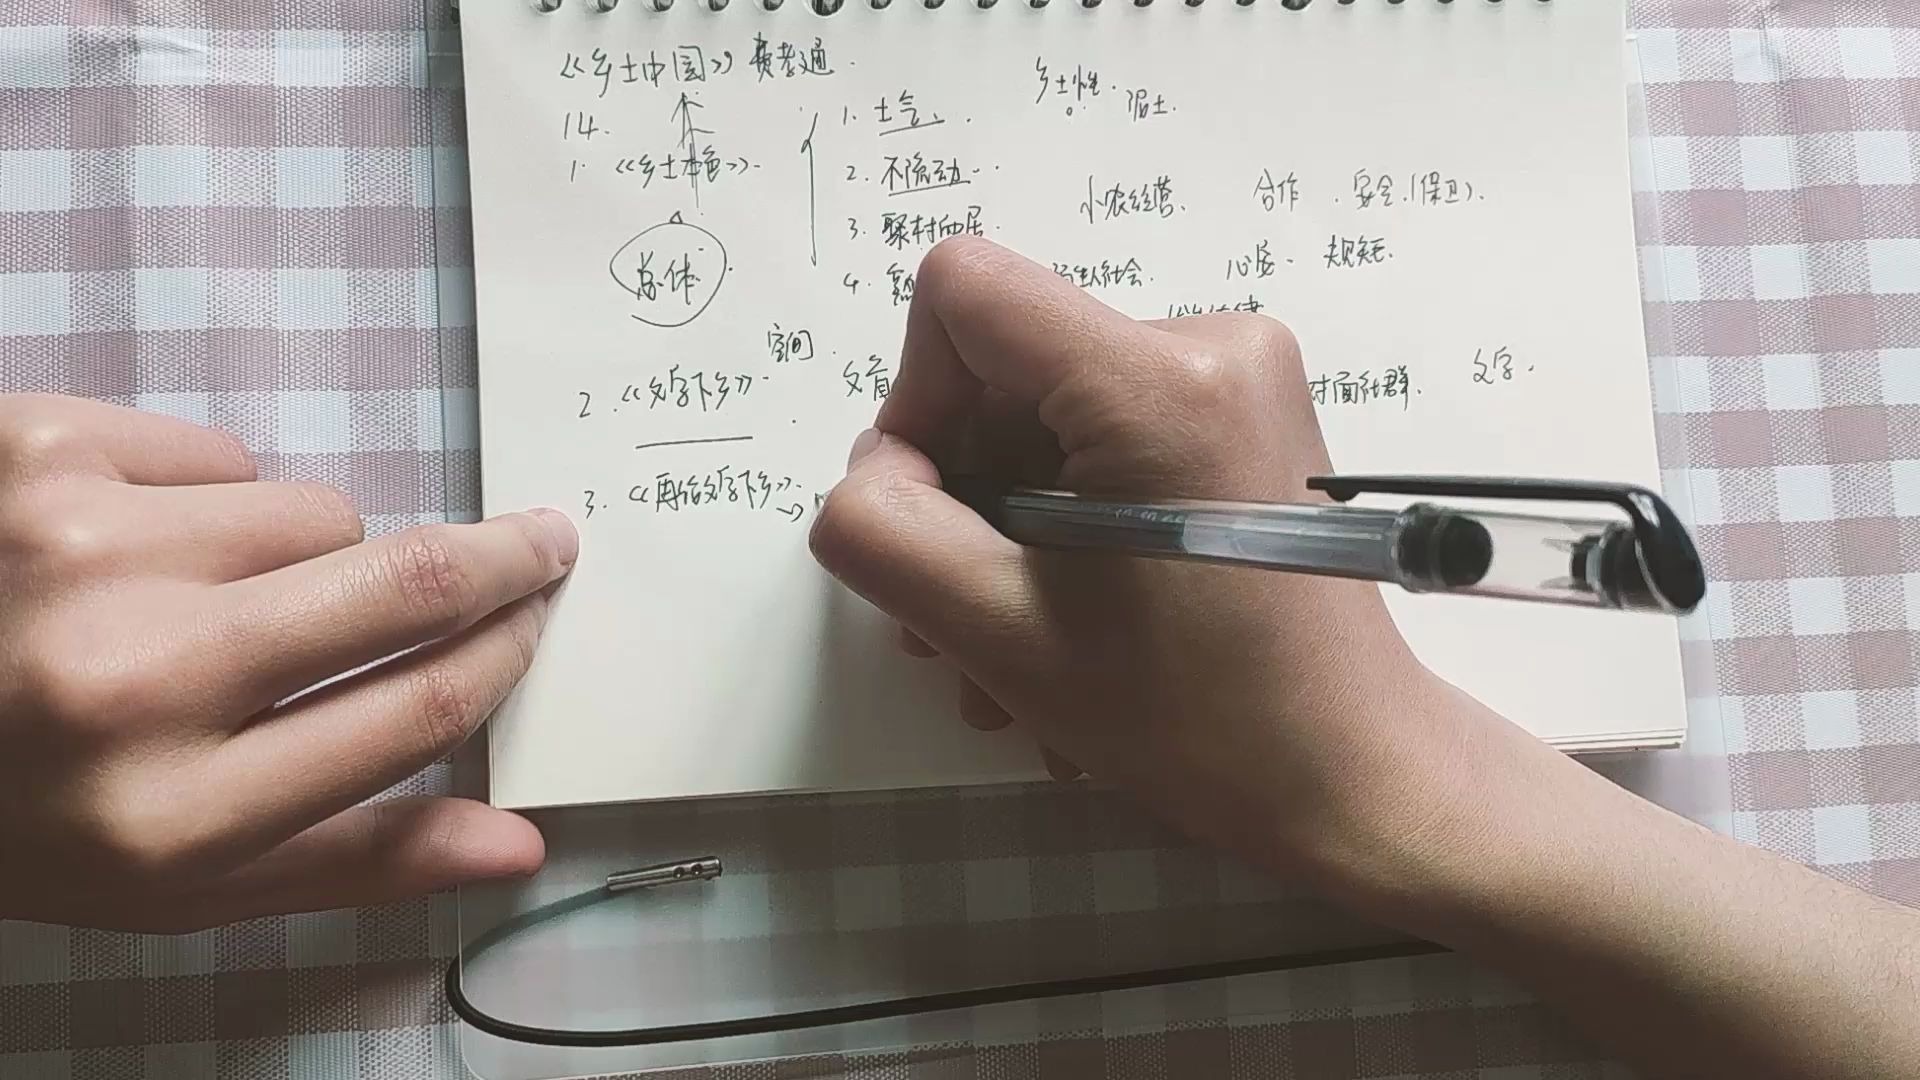 《乡土中国》费孝通.
14. 1. 土气、. 乡土性. 泥土.
1. 《乡土本色》. 2. 不流动. 小农经营、 合作. 安全.(保卫).
3. 聚村而居.
总体 4. 熟 生人社会. 心安. 规矩.
空间.
2.《文字下乡》. 文盲 对面社群. 文字.
3.《再论文字下乡》.→